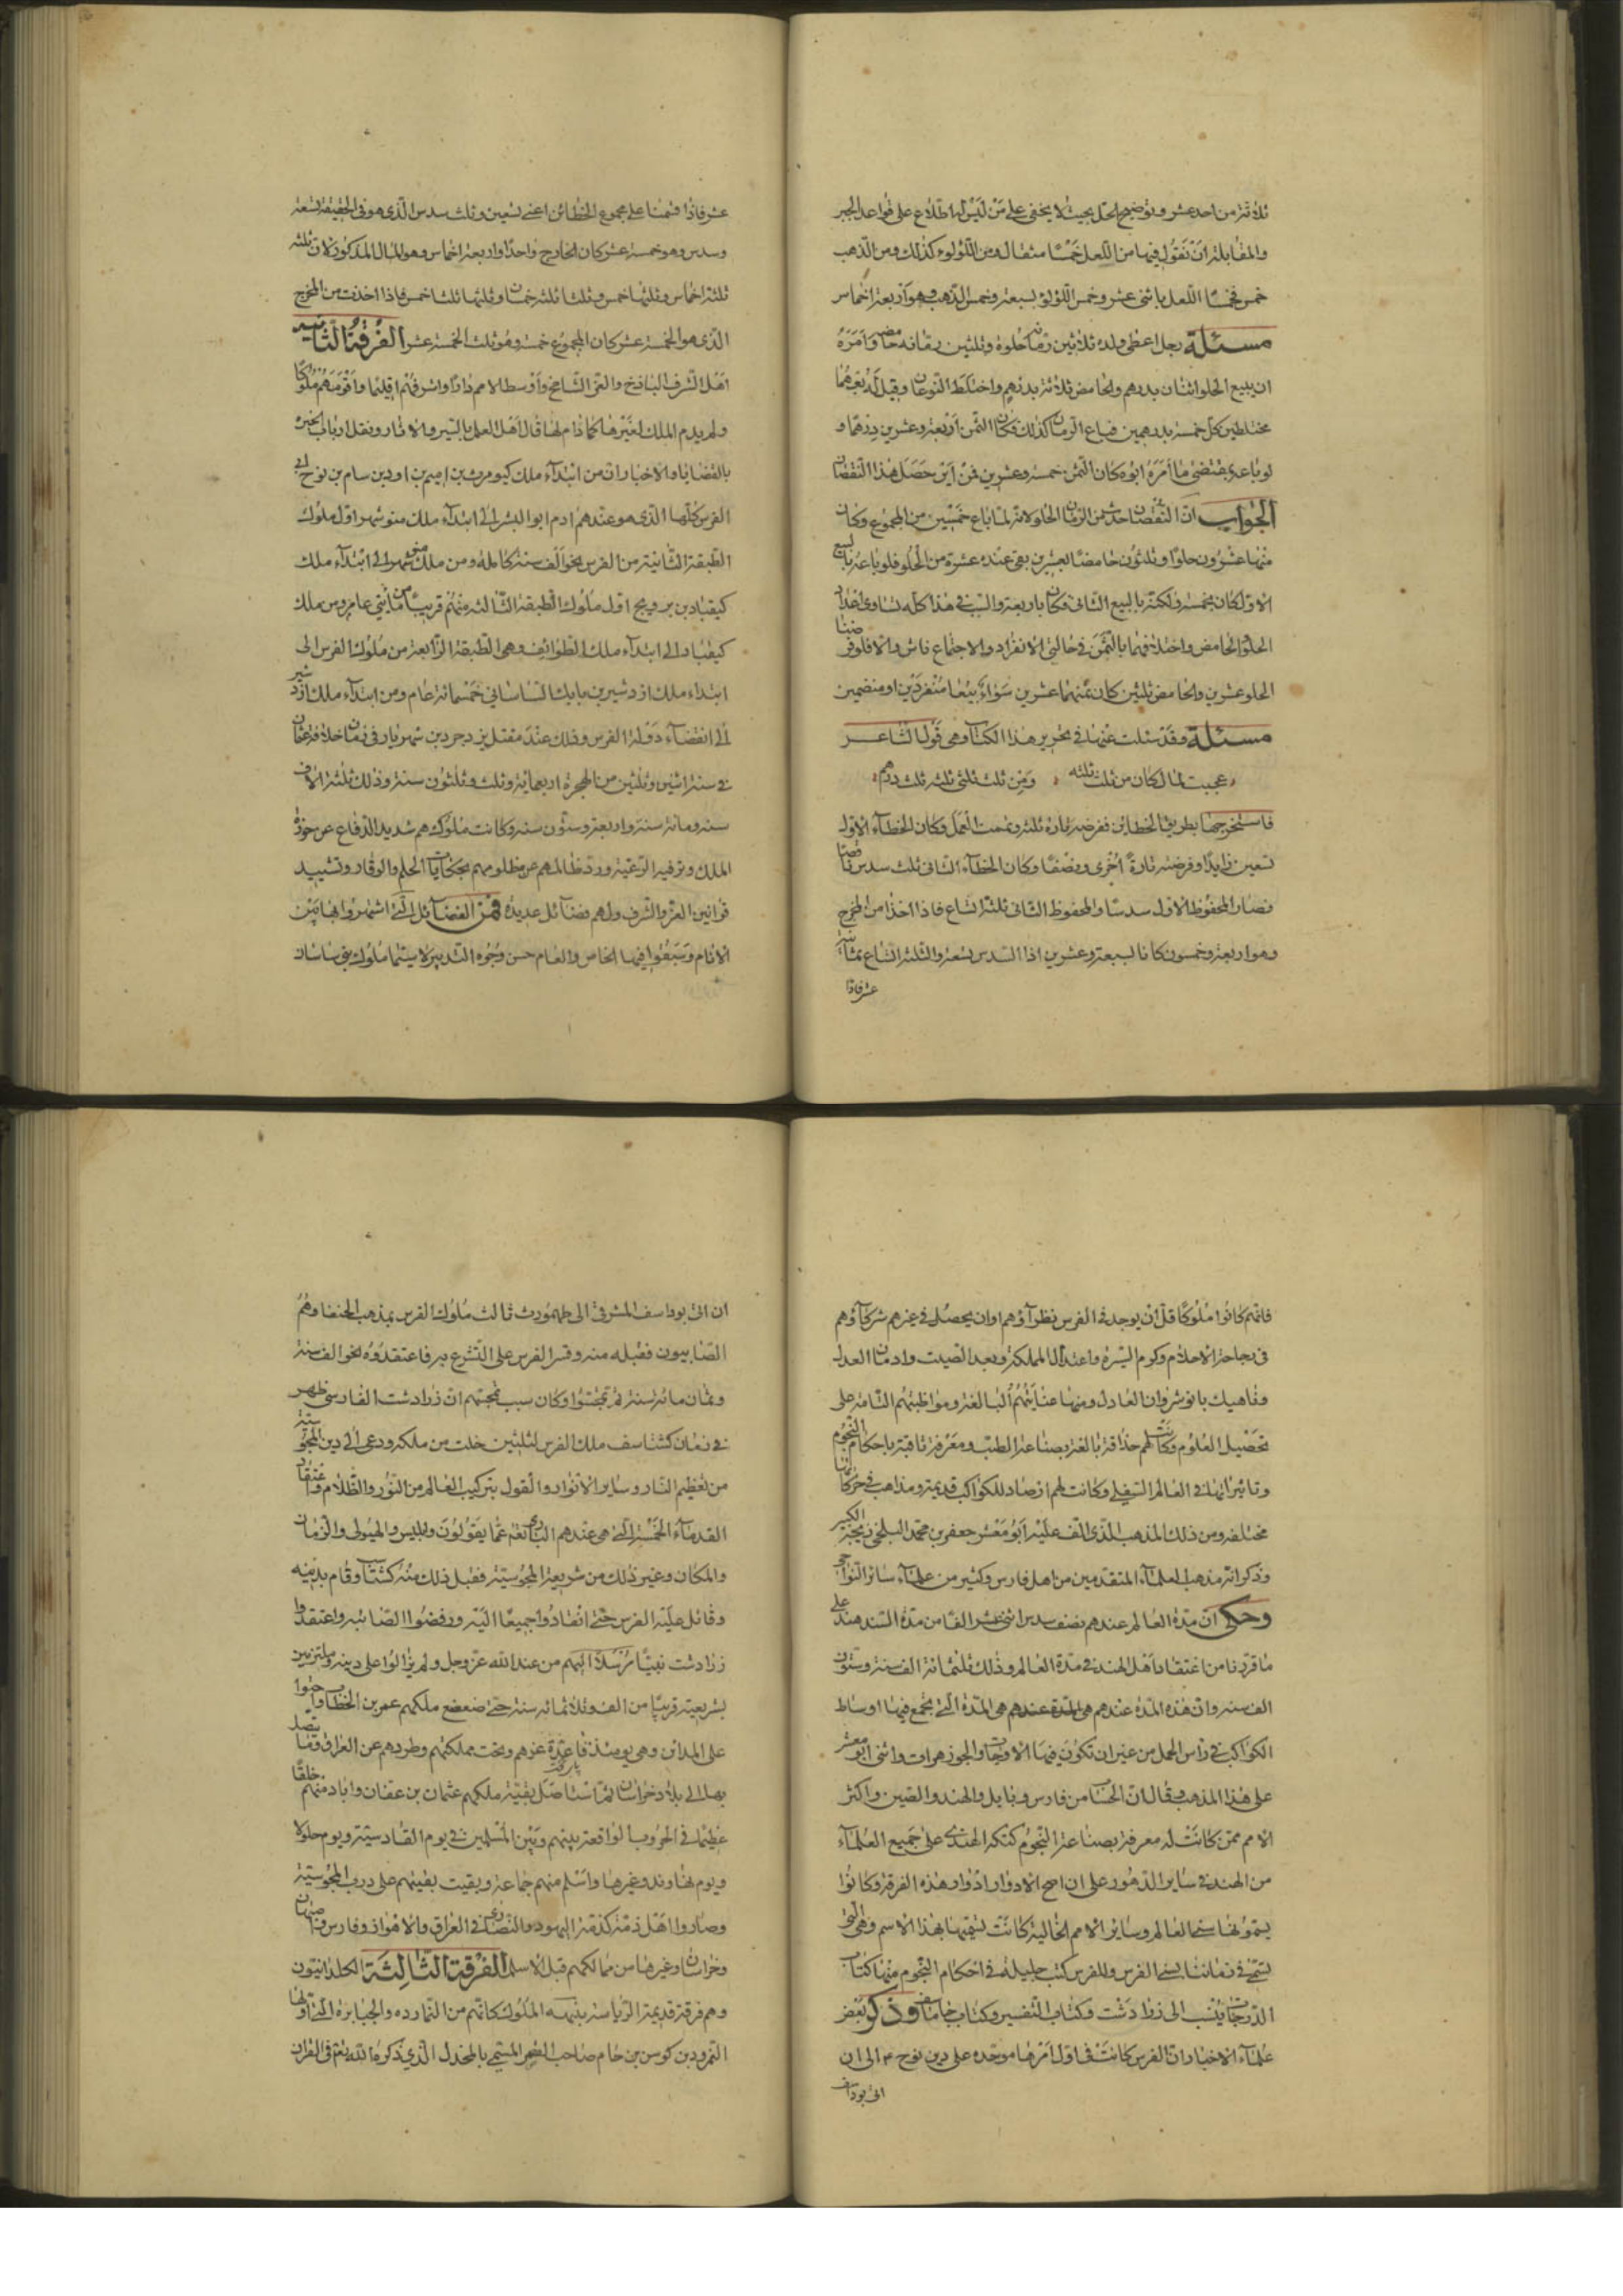 ثلاثة من احد عشر وتوضيح الحل بحيث لا يخفى على من ليس له اطلاع على قواعد الجبر
والمقابلة ان تقول قيمة من اللعل خمسا مثقال ومن اللؤلوء كذلك ومن الذهب
خمس فخمسا اللعل باثنى عشر وخمس اللؤلؤ بسبعة وخمس الذهب وهو اربعة اخماس
مسئلة رجل اعطى ولده ثلاثين رمانة حلوة وثلثين رمانة حامضة وامره
ان يبيع الحلو اثنان بدرهم والحامض ثلاثة بدرهم واختلط النوعان وقيل له بعهما
مختلطين كل خمسة بدرهمين فباع الرمان كذلك فكان الثمن اربعة وعشرين درهما و
لو باعه بمقتضى ما امره ابوه كان الثمن خمسة وعشرين فمن اين حصل هذا النقصان
الجواب ان النقصان حدث من الرمان الحلو لانه لما باع خمسين من المجموع وكان
منها عشرون حلوا وثلثون حامضا بعشرين بقى عنده عشرة من الحلو فلو باعه بالبيع
الاول كان بخمسة ولكنه بالبيع الثانى فكان باربعة والسبب فى هذا كله تساوى اعداد
الحلو والحامض واختلافهما بالثمن فى حالتى الانفراد والاجتماع والا فلو فرضنا
الحلو عشرين والحامض ثلثين كان ثمنهما عشرين سواء بيعا منفردين او منضمين
مسئلة وقد سئلت عنها فى تحرير هذا الكتاب وهى قول الشاعر
عجبت لمال كان من ثلث ثلثه ومن ثلث ثلثى ثلثه ثلث درهم
فاستخرجتها بطريق الخطائن ففرضه تارة ثلثة وتممت العمل وكان الخطاء الاول
تسعين زايدا وفرضته تارة اخرى ونصفا وكان الخطاء الثانى ثلث سدس ناقصا
فصار المحفوظ الاول سدسا والمحفوظ الثانى ثلثة اتساع فاذا اخذا من المخرج
وهو اربعة وخمسون كانا لسبعة وعشرين اذا السدس تسعة والثلثة اتساع ثمانية
عشر فاذا
عشر فاذا قسمنا على مجموع الخطائن اعنى تسعين وثلث سدس الذى هو فى الحقيقة تسعة
وسدس وهو خمسة عشر كان الخارج واحدا واربعة اخماس وهو المال المذكور لان ثلثه
ثلثة اخماس وثلثها خمس وثلثا ثلثه خمسان وثلثهما ثلثا خمس فاذا اخذت من المخرج
الذى هو الخمسة عشر كان المجموع خمسة وهو ثلث الخمسة عشر الفرقة الثانية
اهل الشرف الباذخ والعز الشامخ واوسط الامم دارا واشرفهم اقليما واقومهم ملوكا
ولم يدم الملك لغيرها كما دام لها قال اهل العلم بالسير والاثار ونقل ارباب الخبرة
بالقضايا والاخبار ان من ابتداء ملك كيومرث بن اميم بن اود بن سام بن نوح ابى
الفرس كلها الذى هو عندهم ادم ابو البشر الى ابتداء ملك منوشهر اول ملوك
الطبقة الثانية من الفرس نحو الف سنة كاملة ومن ملك منوشهر الى ابتداء ملك
كيقباد بن اول ملوك الطبقة الثالثة منهم قريبا من مائتى عام ومن ملك
كيقباد الى ابتداء ملك الطوائف وهى الطبقة الرابعة من ملوك الفرس الى
ابتداء ملك اردشير بن بابك الساسانى خمسمائة عام ومن ابتداء ملك اردشير
الى انقضاء دولة الفرس وذلك عند مقتل يزدجرد بن شهريار فى زمان خلافة عثمان
فى سنة اثنين وثلثين من الهجرة اربعمائة وثلث وثلثون سنة وذلك ثلثة الاف
سنة ومائة سنة واربعة وستون سنة وكانت ملوكهم شديد الدفاع عن حوزة
الملك وترفيه الرعية ورد ظالمهم عن مظلومهم الحلم والوقار وتشييد
قوانين العز والشرف ولهم فضائل عديدة فمن الفضائل التى اشتهروا بها بين
الانام وسبقوا فيها الخاص والعام حسن وجوه التدبير لا سيما ملوك بنى ساسان
فانهم كانوا ملوكا قل ان يوجد فى الفرس نظراؤهم او ان يحصل فى غيرهم شركاؤهم
فى رجاحة الاحلام وكرم السيرة واعتدال المملكة وبعد الصيت وادمان العدل
وناهيك بانوشروان العادل ومنها عنايتهم البالغة ومواظبتهم التامة على
تحصيل العلوم وكانت لهم حذاقة بالغة بصناعة الطب ومعرفة ثاقبة باحكام النجوم
وتاثيراتها فى العالم السفلى وكانت لهم ارصاد للكواكب قديمة ومذاهب فى حركاتها
مختلفة ومن ذلك المذهب الذى الف عليه ابو معشر جعفر بن محمد البلخى زيجه الكبير
وذكر انه مذهب العلماء المتقدمين من اهل فارس وكثير من علماء سائر النواحى
وحكى ان مدة العالم عندهم نصف سدس اثنى عشر الفا من مدة السندهند على
ما قررنا من اعتقاد اهل الهند فى مدة العالم وذلك ثلثمائة الف سنة وستون
الف سنة وان هذه المدة عندهم هى المدة عندهم هى المدة التى يجمع فيها اوساط
الكواكب فى راس الحمل من غير ان تكون فيها الاوجات والجوزهرات واثنى ابو معشر
على هذا المذهب وقال ان الحساب من فارس وبابل والهند والصين واكثر
الامم ممن كانت له معرفة بصناعة النجوم ككنكه الهندى على جميع العلماء
من الهند فى ساير الدهور على ان اصح الادوار ادوار هذه الفرقة وكانوا
يسمونها سنى العالم وساير الامم الخالية كانت تسميها بهذا الاسم وهى التى
تسمى فى زماننا بسنى الفرس وللفرس كتب جليلة فى احكام النجوم منها كتاب
الدرجات ينسب الى زرادشت وكتاب التفسير وكتاب جاماسف وذكر بعض
علماء الاخبار ان الفرس كانت فى اول امرها موحدة على دين نوح ع الى ان
اتى بوداسف
ان اتى بوداسف المشرقى الى طهمورث ثالث ملوك الفرس بمذهب الحنفا وهم
الصابيون فقبله منه وقسر الفرس على التشرع به فاعتقدوه نحو الف سنة
وثمان مائة سنة ثم تمجسوا وكان سبب تمجسهم ان زرادشت الفارسى ظهر
فى زمان كشتاسف ملك الفرس لثلثين سنة خلت من ملكه ودعى الى دين المجوسية
من تعظيم النار وساير الانوار والقول بتركيب العالم من النور والظلام واعتقاد
القدماء الخمسة التى هى عندهم البارى تعالى عما يقولون وابليس والهيولى والزمان
والمكان وغير ذلك من شريعة المجوسية فقبل ذلك منه كشتاسف وقام بدينه
وقاتل عليه الفرس حتى انقادوا جميعا اليه ورفضوا الصابئة واعتقدوا
زرادشت نبيا مرسلا اليهم من عند الله عز وجل ولم يزالوا على دينه وملتزمين
بشريعته قريبا من الف وثلاثمائة سنة حتى ضعضع ملكهم عمر بن الخطاب واحتوا
على المدائن وهى يومئذ قاعدة عزهم وتخت مملكتهم وطردهم عن العراق وما يتصل
بها الى بلاد خراسان ثم استاصل بقية ملكهم عثمان بن عفان واباد منهم خلقا
عظيما فى الحروب الواقعة بينهم وبين المسلمين فى يوم القادسية ويوم جلولا
ويوم نهاوند وغيرها واسلم منهم جماعة وبقيت بقيتهم على دين المجوسية
وصاروا اهل ذمة كذمة اليهود والنصارى فى العراق والاهواز وفارس واصبهان
وخراسان وغيرها من ممالكهم قبل الاسلام الفرقة الثالثة الكلدانيون
وهم فرقة قديمة الرياسة نبيهة الملوك كانهم من النمارده والجبابرة التى اولها
النمرود بن كوس بن حام صاحب القصر المسمى بالمجدل الذى ذكره الله تعالى فى القران